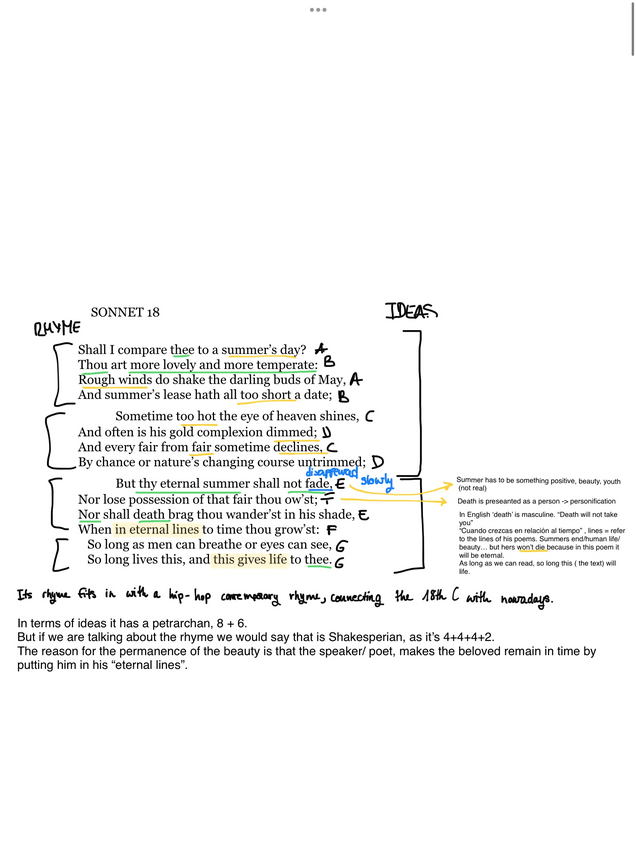 SONNET 18
IDEAS
RHYME
Shall I compare thee to a summer's day? A
Thou art more lovely and more temperate: B
Rough winds do shake the darling buds of May, A
And summer's lease hath all too short a date; B
Sometime too hot the eye of heaven shines, C
And often is his gold complexion dimmed; D
And every fair from fair sometime declines, C
By chance or nature's changing course untrimmed; D
disappeared
But thy eternal summer shall not fade, E slowly
Nor lose possession of that fair thou ow'st; F
Nor shall death brag thou wander'st in his shade, E
When in eternal lines to time thou grow'st: F
So long as men can breathe or eyes can see, G
So long lives this, and this gives life to thee. G
Summer has to be something positive, beauty, youth
(not real)
Death is preseanted as a person -> personification
In English 'death' is masculine. "Death will not take
you"
"Cuando crezcas en relación al tiempo" , lines = refer
to the lines of his poems. Summers end/human life/
beauty... but hers won't die because in this poem it
will be eternal.
As long as we can read, so long this ( the text) will
life.
Its rhyme fits in with a hip-hop contemporary rhyme, connecting the 18th C with nowadays.
In terms of ideas it has a petrarchan, 8 + 6.
But if we are talking about the rhyme we would say that is Shakesperian, as it's 4+4+4+2.
The reason for the permanence of the beauty is that the speaker/ poet, makes the beloved remain in time by
putting him in his "eternal lines".